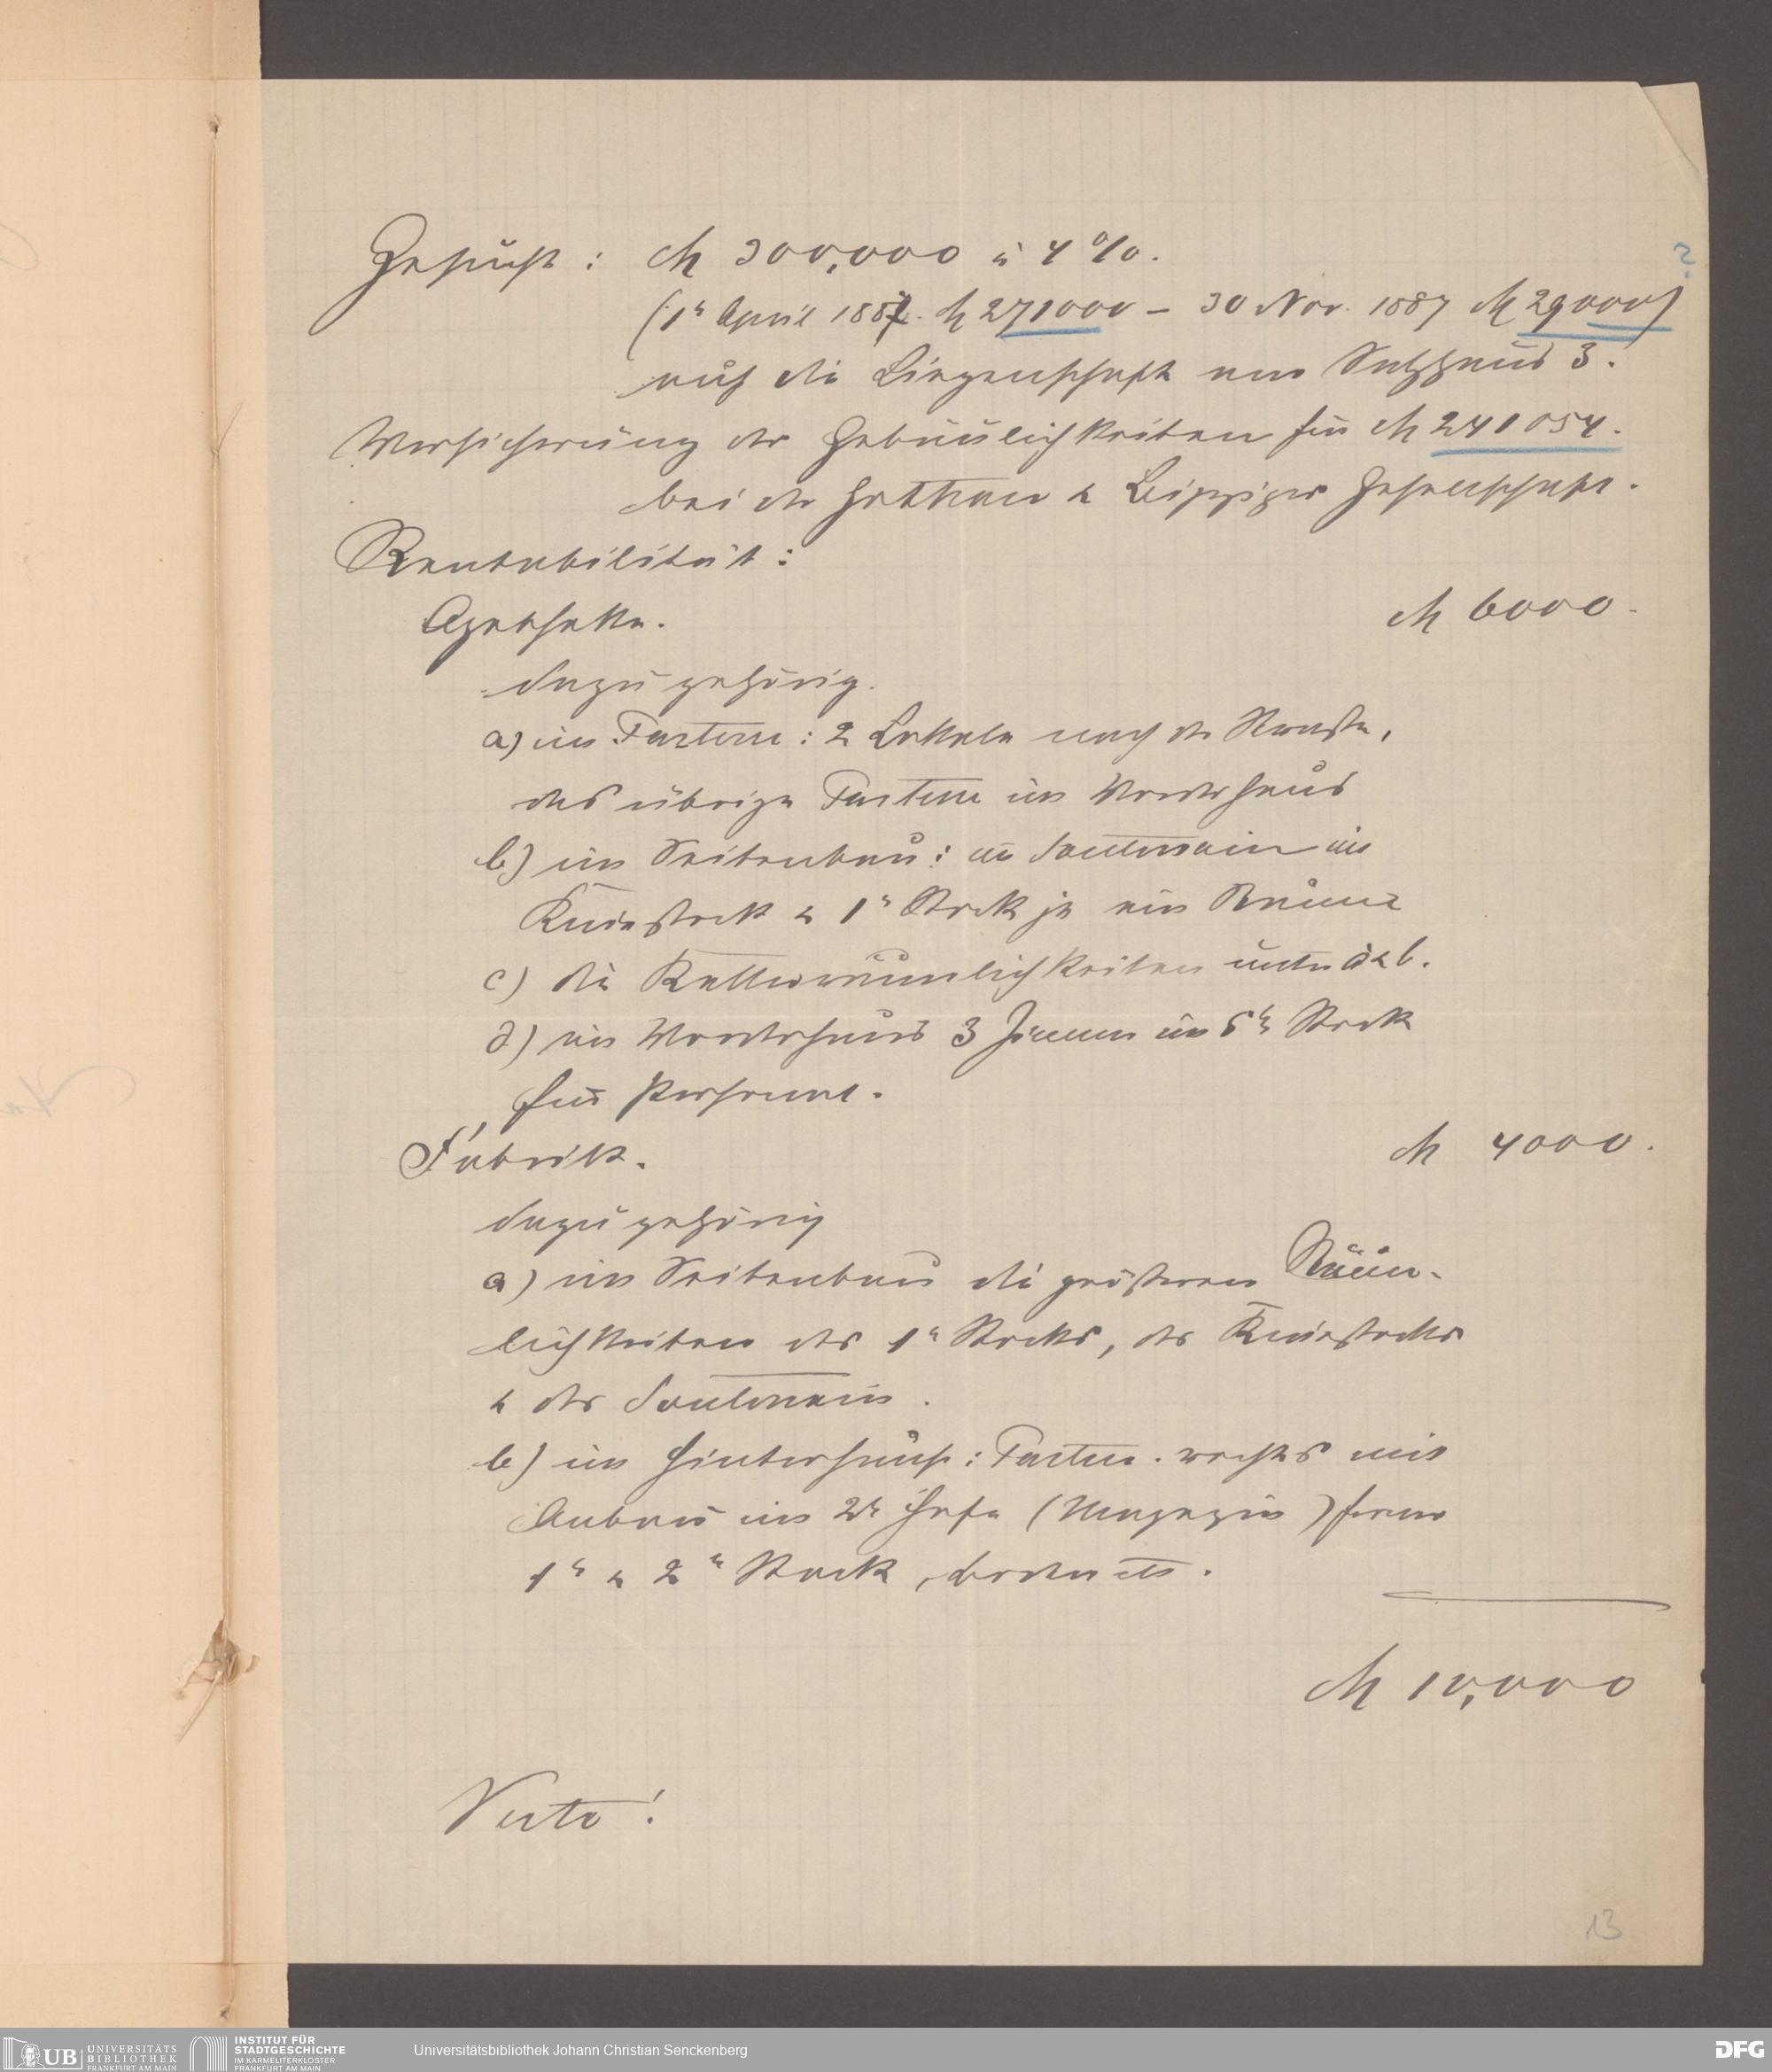 Gesucht: M 300,000 à 4 %.
?
(1n April 1887. M 271000 – 30 Nov. 1887 M 29000)
auf die Liegenschaft am Salzhaus 3.
Versicherung der Gebäulichkeiten für M 241054.
bei der Gothaer & Leipziger Gesellschaft.
Rentabilität:
Apotheke. M 6000.
dazu gehörig.
a) im Parterre: 2 Lokale nach der Straße,
das übrige Parterre im Vorderhaus
b) im Seitenbau: im Souterrain im
Kniestock & 1n Stock je ein Raum
c) die Kellerräumlichkeiten unter a & b.
d) im Vorderhaus 3 Zimmer im 5n Stock
für Personal.
Fabrik. M 4000.
dazu gehörig
a) im Seitenbau die größeren Räum-
lichkeiten des 1n Stocks, des Kniestocks
& des Souterrain.
b) im Hinterhaus: Parterre rechts mit
Anbau im 2n Hofe (Magazin) ferner
1n & 2n Stock, Boden etc.
M 10,000
Verte!
13
UB UNIVERSITÄTS BIBLIOTHEK FRANKFURT AM MAIN
INSTITUT FÜR STADTGESCHICHTE IM KARMELITERKLOSTER FRANKFURT AM MAIN
Universitätsbibliothek Johann Christian Senckenberg
DFG